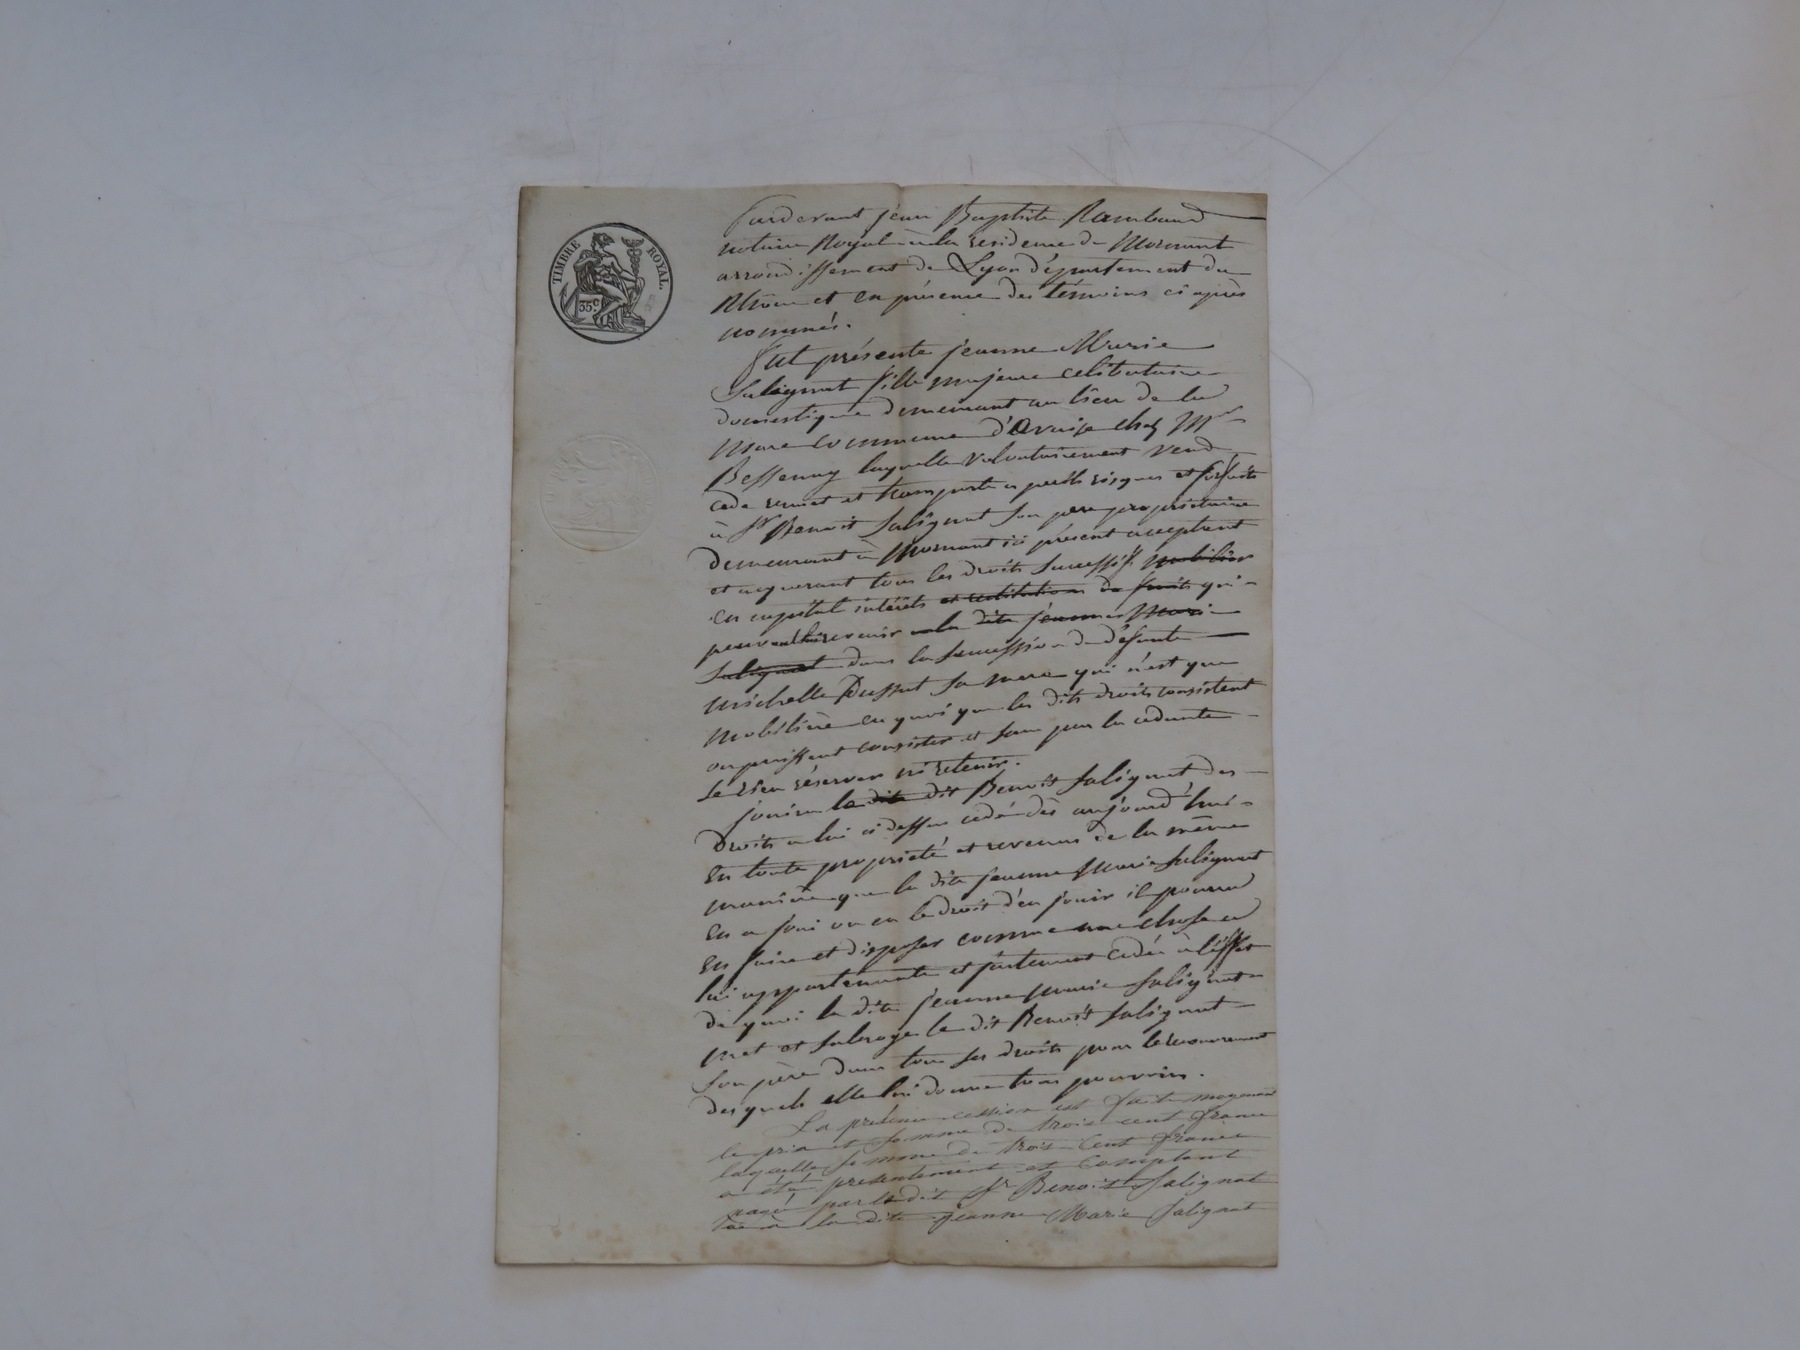 TIMBRE ROYAL.
35 c.
Pardevant jean Baptiste Rambaud
notaire Royal à la residence de Mornant
arrondissement de Lyon département du
Rhône et en présence des témoins ci après
nommés.
Fut présente jeanne Marie
Salignat fille majeure celibataire
domestique demeurant au lieu de la
Mare commune d'Oruise chez Mr
Bessenay laquelle volontairement vend
cede remet et transporte a perils risques et forfaits
à Sr Benoit Salignat son pere propriétaire
demeurant à Mornant ici présent acceptant
et acquerant tous les droits successifs mobilier
en capital intérêts et restitutions de fruits qui
peuvent lui revenir a la dite jeanne Marie
Salignat dans la succession de défunte
Michelle Dussut sa mere qui n'est que
mobilière en quoi que les dits droits consistent
ou puissent consister et sans par la cedante
se rien réserver ni retenir.
jouira la dite dit Benoit Salignat des
droits a lui ci dessus cédé dès aujourd'hui
en toute propriété et revenus de la même
manière que la dite jeanne Marie Salignat
en a joui ou eu le droit d'en jouir il pourra
en faire et disposer comme une chose a
lui appartenante et justement cédée à l'effet
de quoi la dite jeanne Marie Salignat
met et subroge le dit Benoit Salignat
son père dans tous ses droits pour le recouvrement
desquels elle lui donne tous pouvoirs.
La présente cession est faite moyenant
le prix et somme de trois cent francs
laquelle somme de trois cent francs
a été présentement et comptant
payé par le dit Sr Benoit Salignat
à la dite jeanne Marie Salignat